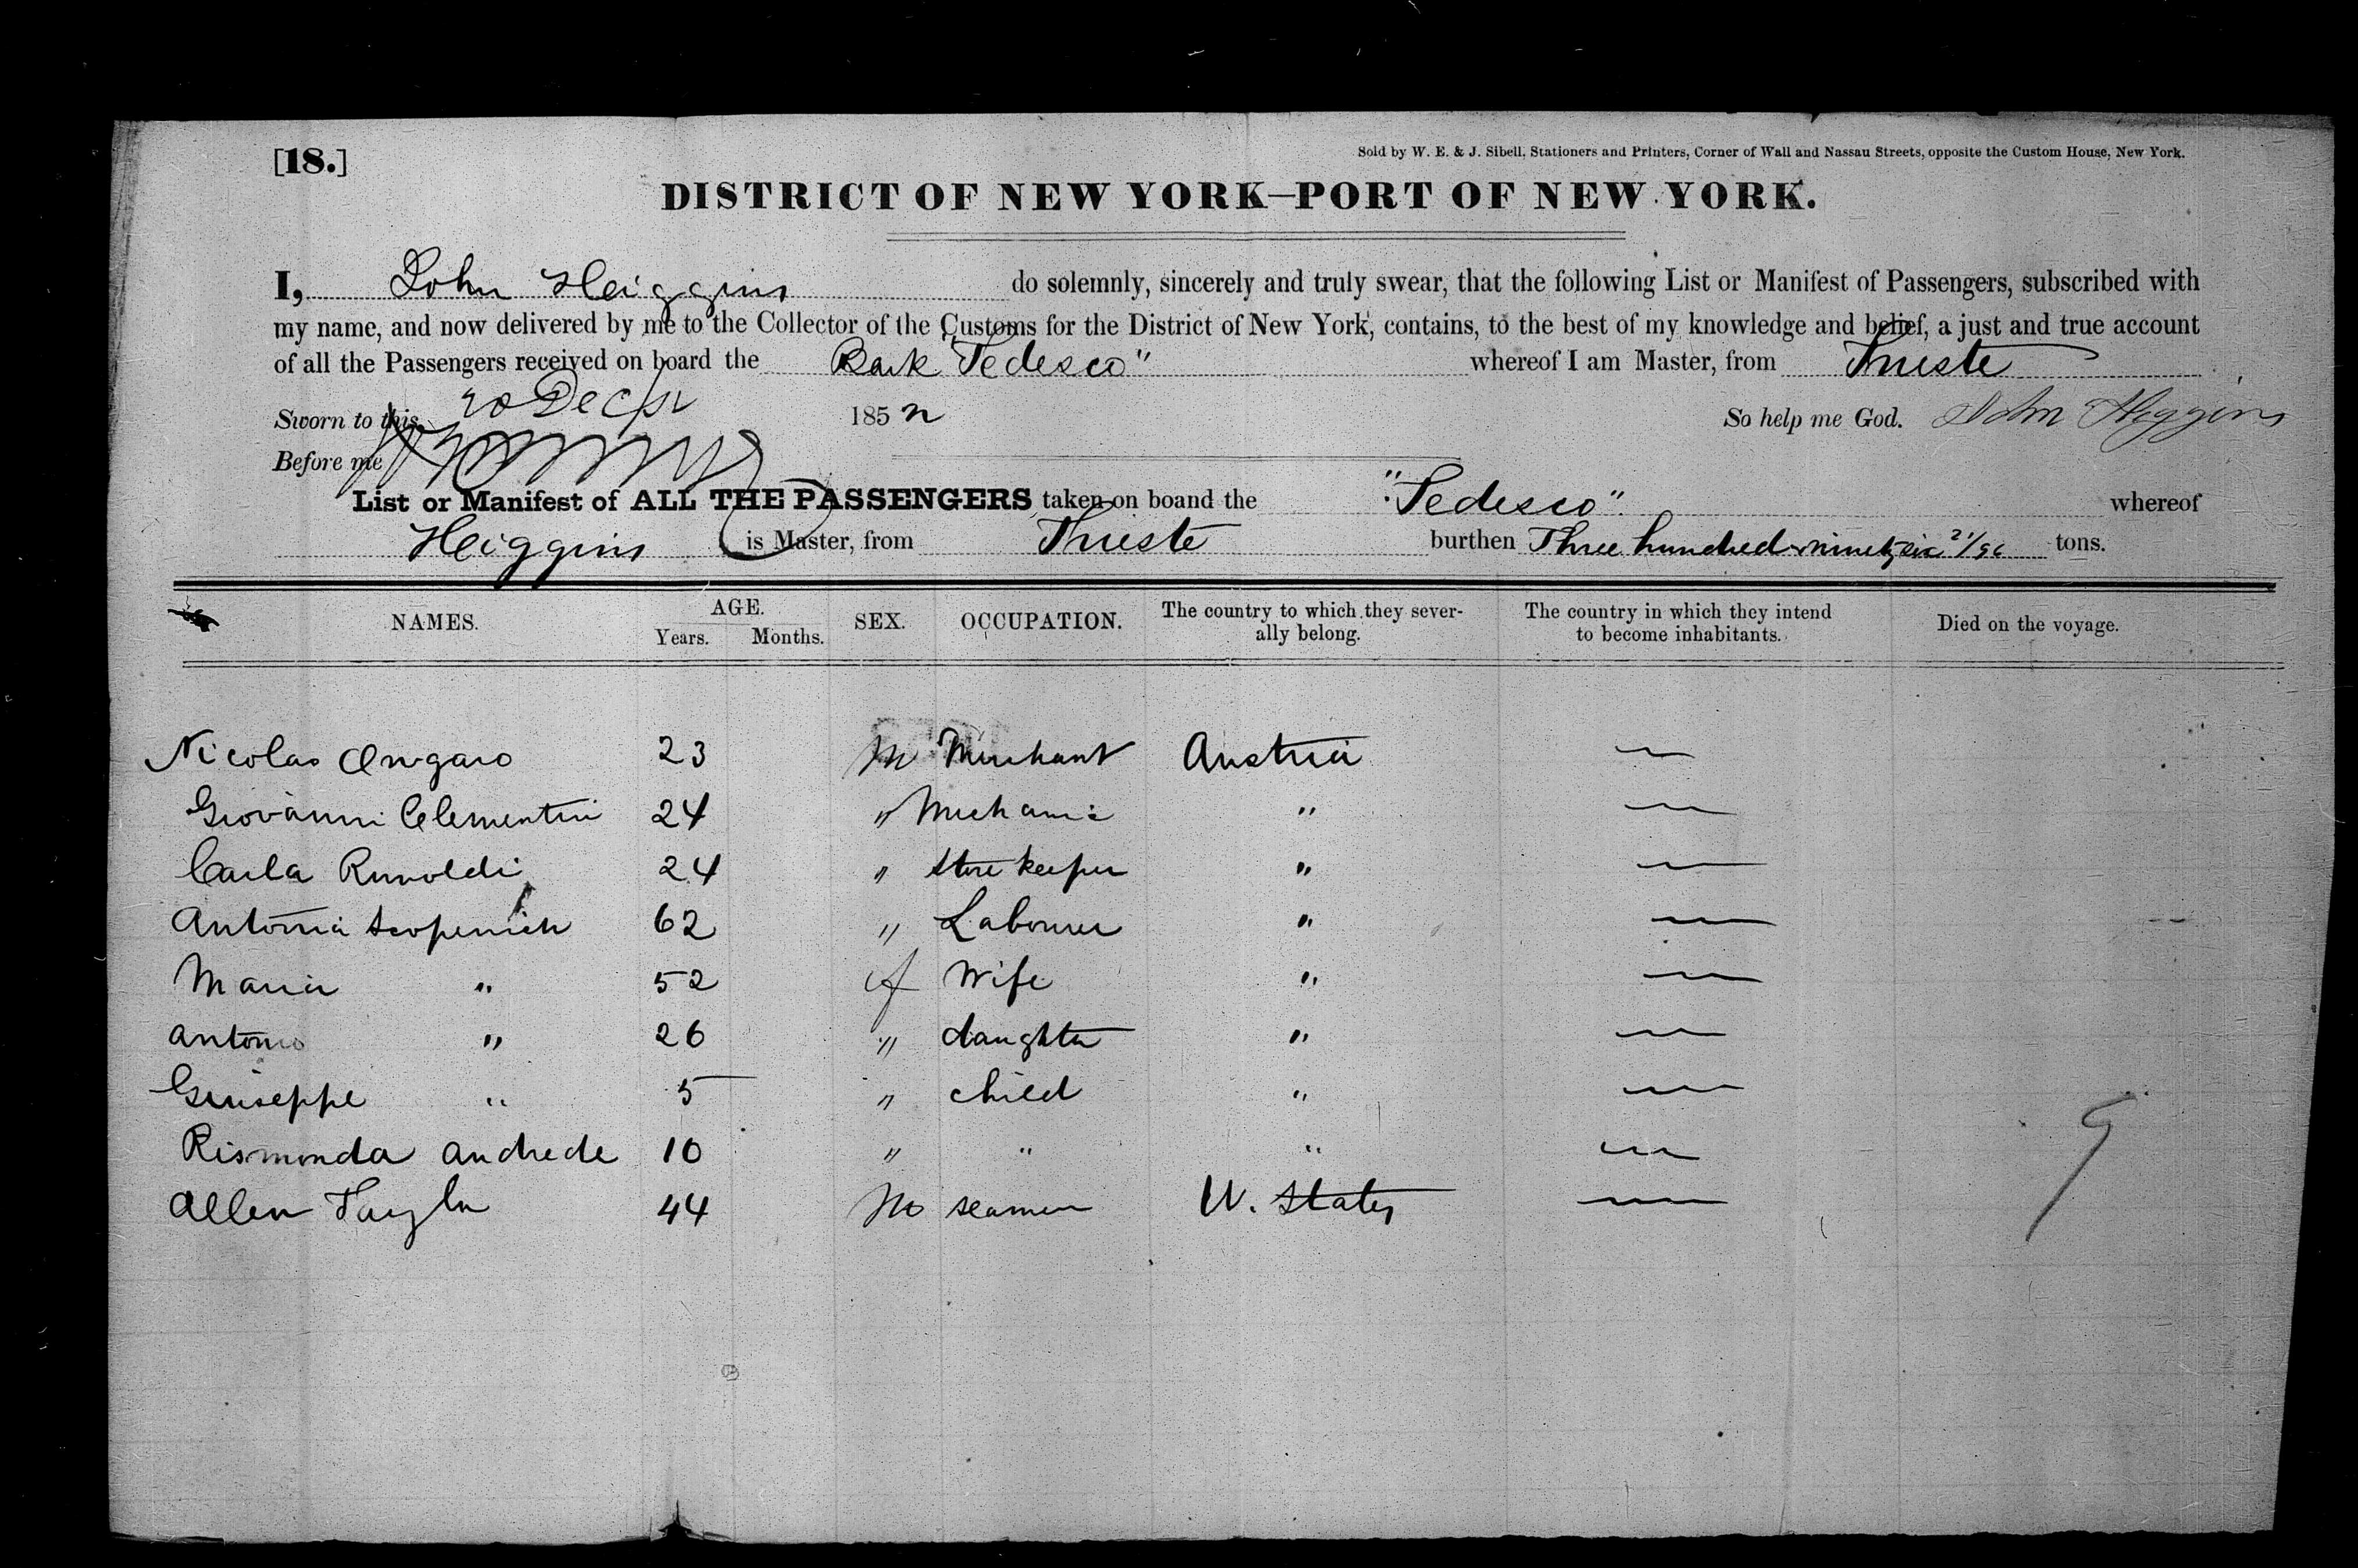 [18.]
Sold by W. E. & J. Sibell, Stationers and Printers, Corner of Wall and Nassau Streets, opposite the Custom House, New York.
DISTRICT OF NEW YORK—PORT OF NEW YORK.
I, John Heiggins do solemnly, sincerely and truly swear, that the following List or Manifest of Passengers, subscribed with
my name, and now delivered by me to the Collector of the Customs for the District of New York, contains, to the best of my knowledge and belief, a just and true account
of all the Passengers received on board the Bark "Tedesco" whereof I am Master, from Trieste
Sworn to this 20 Dec/52 1852 So help me God. John Higgins
Before me
List or Manifest of ALL THE PASSENGERS taken on boand the "Tedesco" whereof
Heiggins is Master, from Trieste burthen Three hundred ninety six 21/96 tons.
NAMES. AGE. Years. Months. SEX. OCCUPATION. The country to which they severally belong. The country in which they intend to become inhabitants. Died on the voyage.
Nicolas Ongaro 23 M Merchant Austria —
Giovanni Clementini 24 " Mechanic " —
Carla 24 " Store keeper " —
Antonia 62 " Labourer " —
Maria " 52 f Wife " —
Antonio " 26 " daughter " —
Giuseppe " 5 " child " —
Rismonda Andrede 10 " " " —
Allen Taylor 44 M seaman U. States —
9